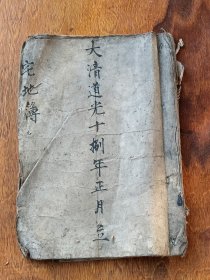 大清道光十捌年正月立
宅地簿